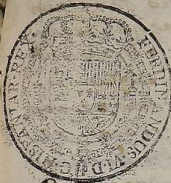 FERDINANDUS VI D G HISPANIAR REX